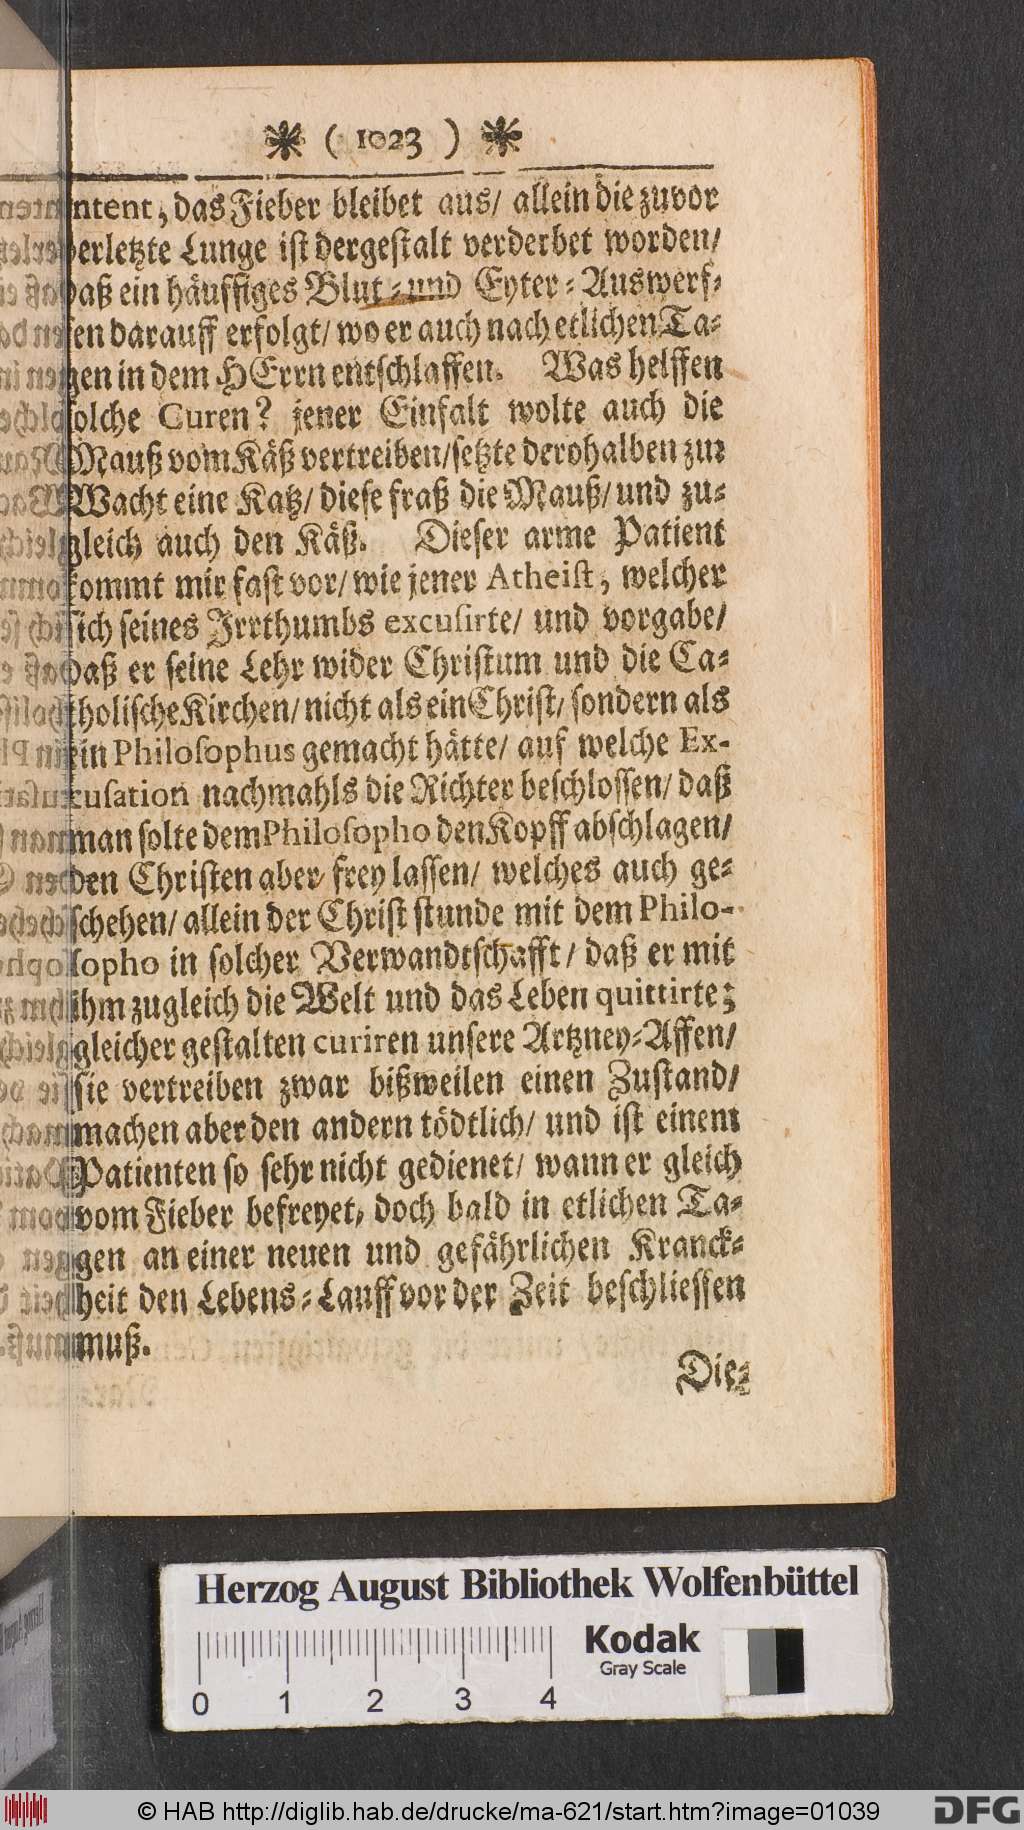 ❋ ( 1023 ) ❋
ntent, das Fieber bleibet aus/ allein die zuvor
verletzte Lunge ist dergestalt verderbet worden/
daß ein häuffiges Blut- und Eyter-Auswerf-
fen darauff erfolgt/ wo er auch nach etlichen Ta-
gen in dem HErrn entschlaffen. Was helffen
solche Curen? jener Einfalt wolte auch die
Mauß vom Käß vertreiben/ setzte derohalben zur
Wacht eine Katz/ diese fraß die Mauß/ und zu-
gleich auch den Käß. Dieser arme Patient
kommt mir fast vor/ wie jener Atheist, welcher
sich seines Irrthumbs excusirte/ und vorgabe/
daß er seine Lehr wider Christum und die Ca-
tholische Kirchen/ nicht als ein Christ/ sondern als
ein Philosophus gemacht hätte/ auf welche Ex-
cusation nachmahls die Richter beschlossen/ daß
man solte dem Philosopho den Kopff abschlagen/
den Christen aber frey lassen/ welches auch ge-
schehen/ allein der Christ stunde mit dem Philo-
sopho in solcher Verwandtschafft/ daß er mit
ihm zugleich die Welt und das Leben quittirte;
gleicher gestalten curiren unsere Artzney-Affen/
sie vertreiben zwar bißweilen einen Zustand/
machen aber den andern tödtlich/ und ist einem
Patienten so sehr nicht gedienet/ wann er gleich
vom Fieber befreyet, doch bald in etlichen Ta-
gen an einer neuen und gefährlichen Kranck-
heit den Lebens-Lauff vor der Zeit beschliessen
muß.
Die-
Herzog August Bibliothek Wolfenbüttel
Kodak
Gray Scale
0 1 2 3 4
© HAB http://diglib.hab.de/drucke/ma-621/start.htm?image=01039
DFG